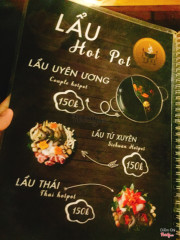 LẨU
Hot Pot
LẨU UYÊN ƯƠNG
Couple hotpot
150k
LẨU TỨ XUYÊN
Sichuan Hotpot
150k
LẨU THÁI
Thai hotpot
150k